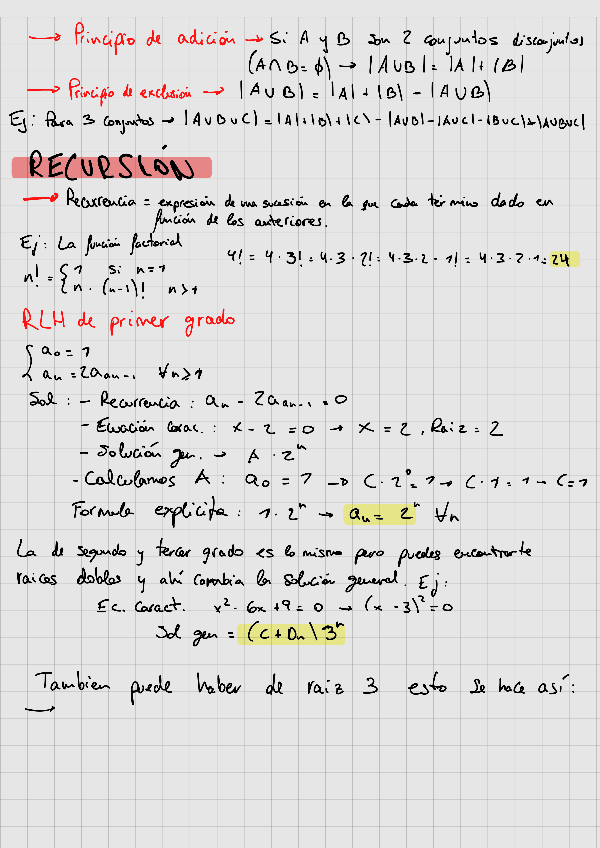 → Principio de adición → Si A y B son 2 conjuntos disconjuntos
(A∩B = ϕ) → |A∪B| = |A| + |B|
→ Principio de exclusión → |A∪B| = |A| + |B| - |A∪B|
Ej: Para 3 conjuntos → |A∪B∪C| = |A|+|B|+|C| - |A∪B| - |A∪C| - |B∪C| + |A∪B∪C|
RECURSIÓN
→ Recurrencia = expresión de una sucesión en la que cada término dado en
función de los anteriores.
Ej: La función factorial
4! = 4 · 3! = 4 · 3 · 2! = 4 · 3 · 2 · 1! = 4 · 3 · 2 · 1 = 24
n! = { 1 si n = 1
{ n · (n-1)! n > 1
RLH de primer grado
{ a₀ = 1
{ aₙ = 2aₙ₋₁ ∀n ≥ 1
Sol : - Recurrencia : aₙ - 2aₙ₋₁ = 0
- Ecuación carac. : x - 2 = 0 → x = 2 , Raiz = 2
- Solución gen. → A · 2ⁿ
- Calculamos A : a₀ = 1 → C · 2⁰ = 1 → C · 1 = 1 → C = 1
Formula explicita : 1 · 2ⁿ → aₙ = 2ⁿ ∀n
La de segundo y tercer grado es lo mismo pero puedes encontrarte
raices dobles y ahí cambia la solución general. Ej:
Ec. Caract. x² - 6x + 9 = 0 → (x - 3)² = 0
Sol gen = (C + Dn) 3ⁿ
Tambien puede haber de raiz 3 esto se hace así:
→